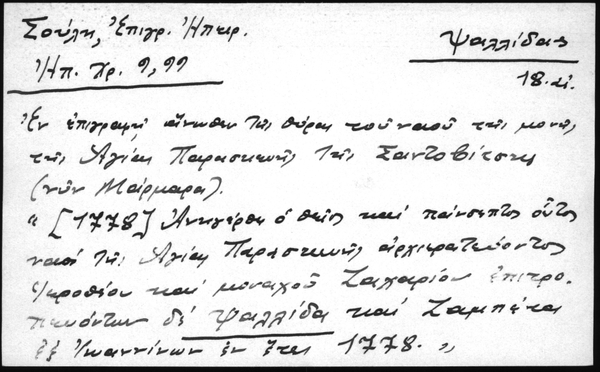 Σούλη, Ἐπιγρ. Ἠπειρ.
Ἠπ. Χρ. 9, 99
Ψαλλίδας
18. αἰ.
Ἐν ἐπιγραφῇ ἄνωθεν τῆς θύρας τοῦ ναοῦ τῆς μονῆς
τῆς Ἁγίας Παρασκευῆς τῆς Σαντοβίτσης
(νῦν Μάρμαρα).
" [1778] Ἀνηγέρθη ὁ θεῖος καὶ πάνσεπτος οὗτος
ναὸς τῆς Ἁγίας Παρασκευῆς ἀρχιερατεύοντος
Ἱεροθέου καὶ μοναχοῦ Ζαχαρίου ἐπιτρο-
πευόντων δὲ Ψαλλίδα καὶ Ζαμπέκα
ἐξ Ἰωαννίνων ἐν ἔτει 1778. "